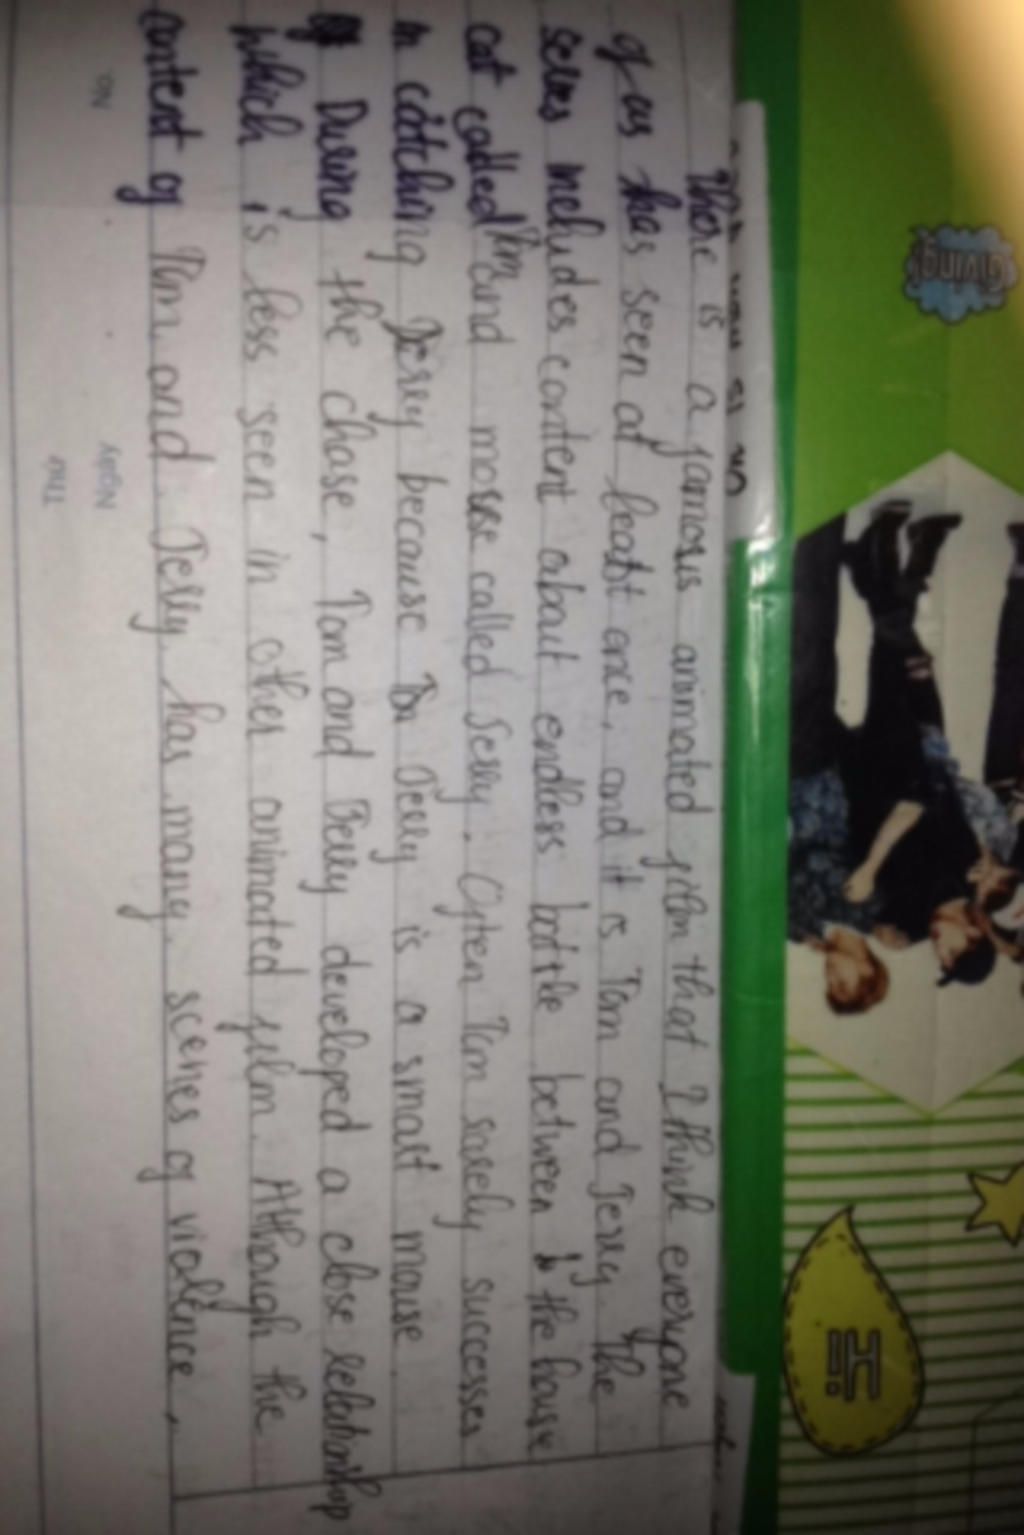 There is a famous animated film that I think everyone
of us has seen at least once, and it is Tom and Jerry. The
series includes content about endless battle between the house
cat called Tom and mouse called Jerry. Often Tom rarely successes
in catching Jerry because Jerry is a smart mouse.
During the chase, Tom and Jerry developed a close relationship
which is less seen in other animated film. Although the
content of Tom and Jerry has many scenes of violence,
No.
Ngày
Thứ
Giving
Hi